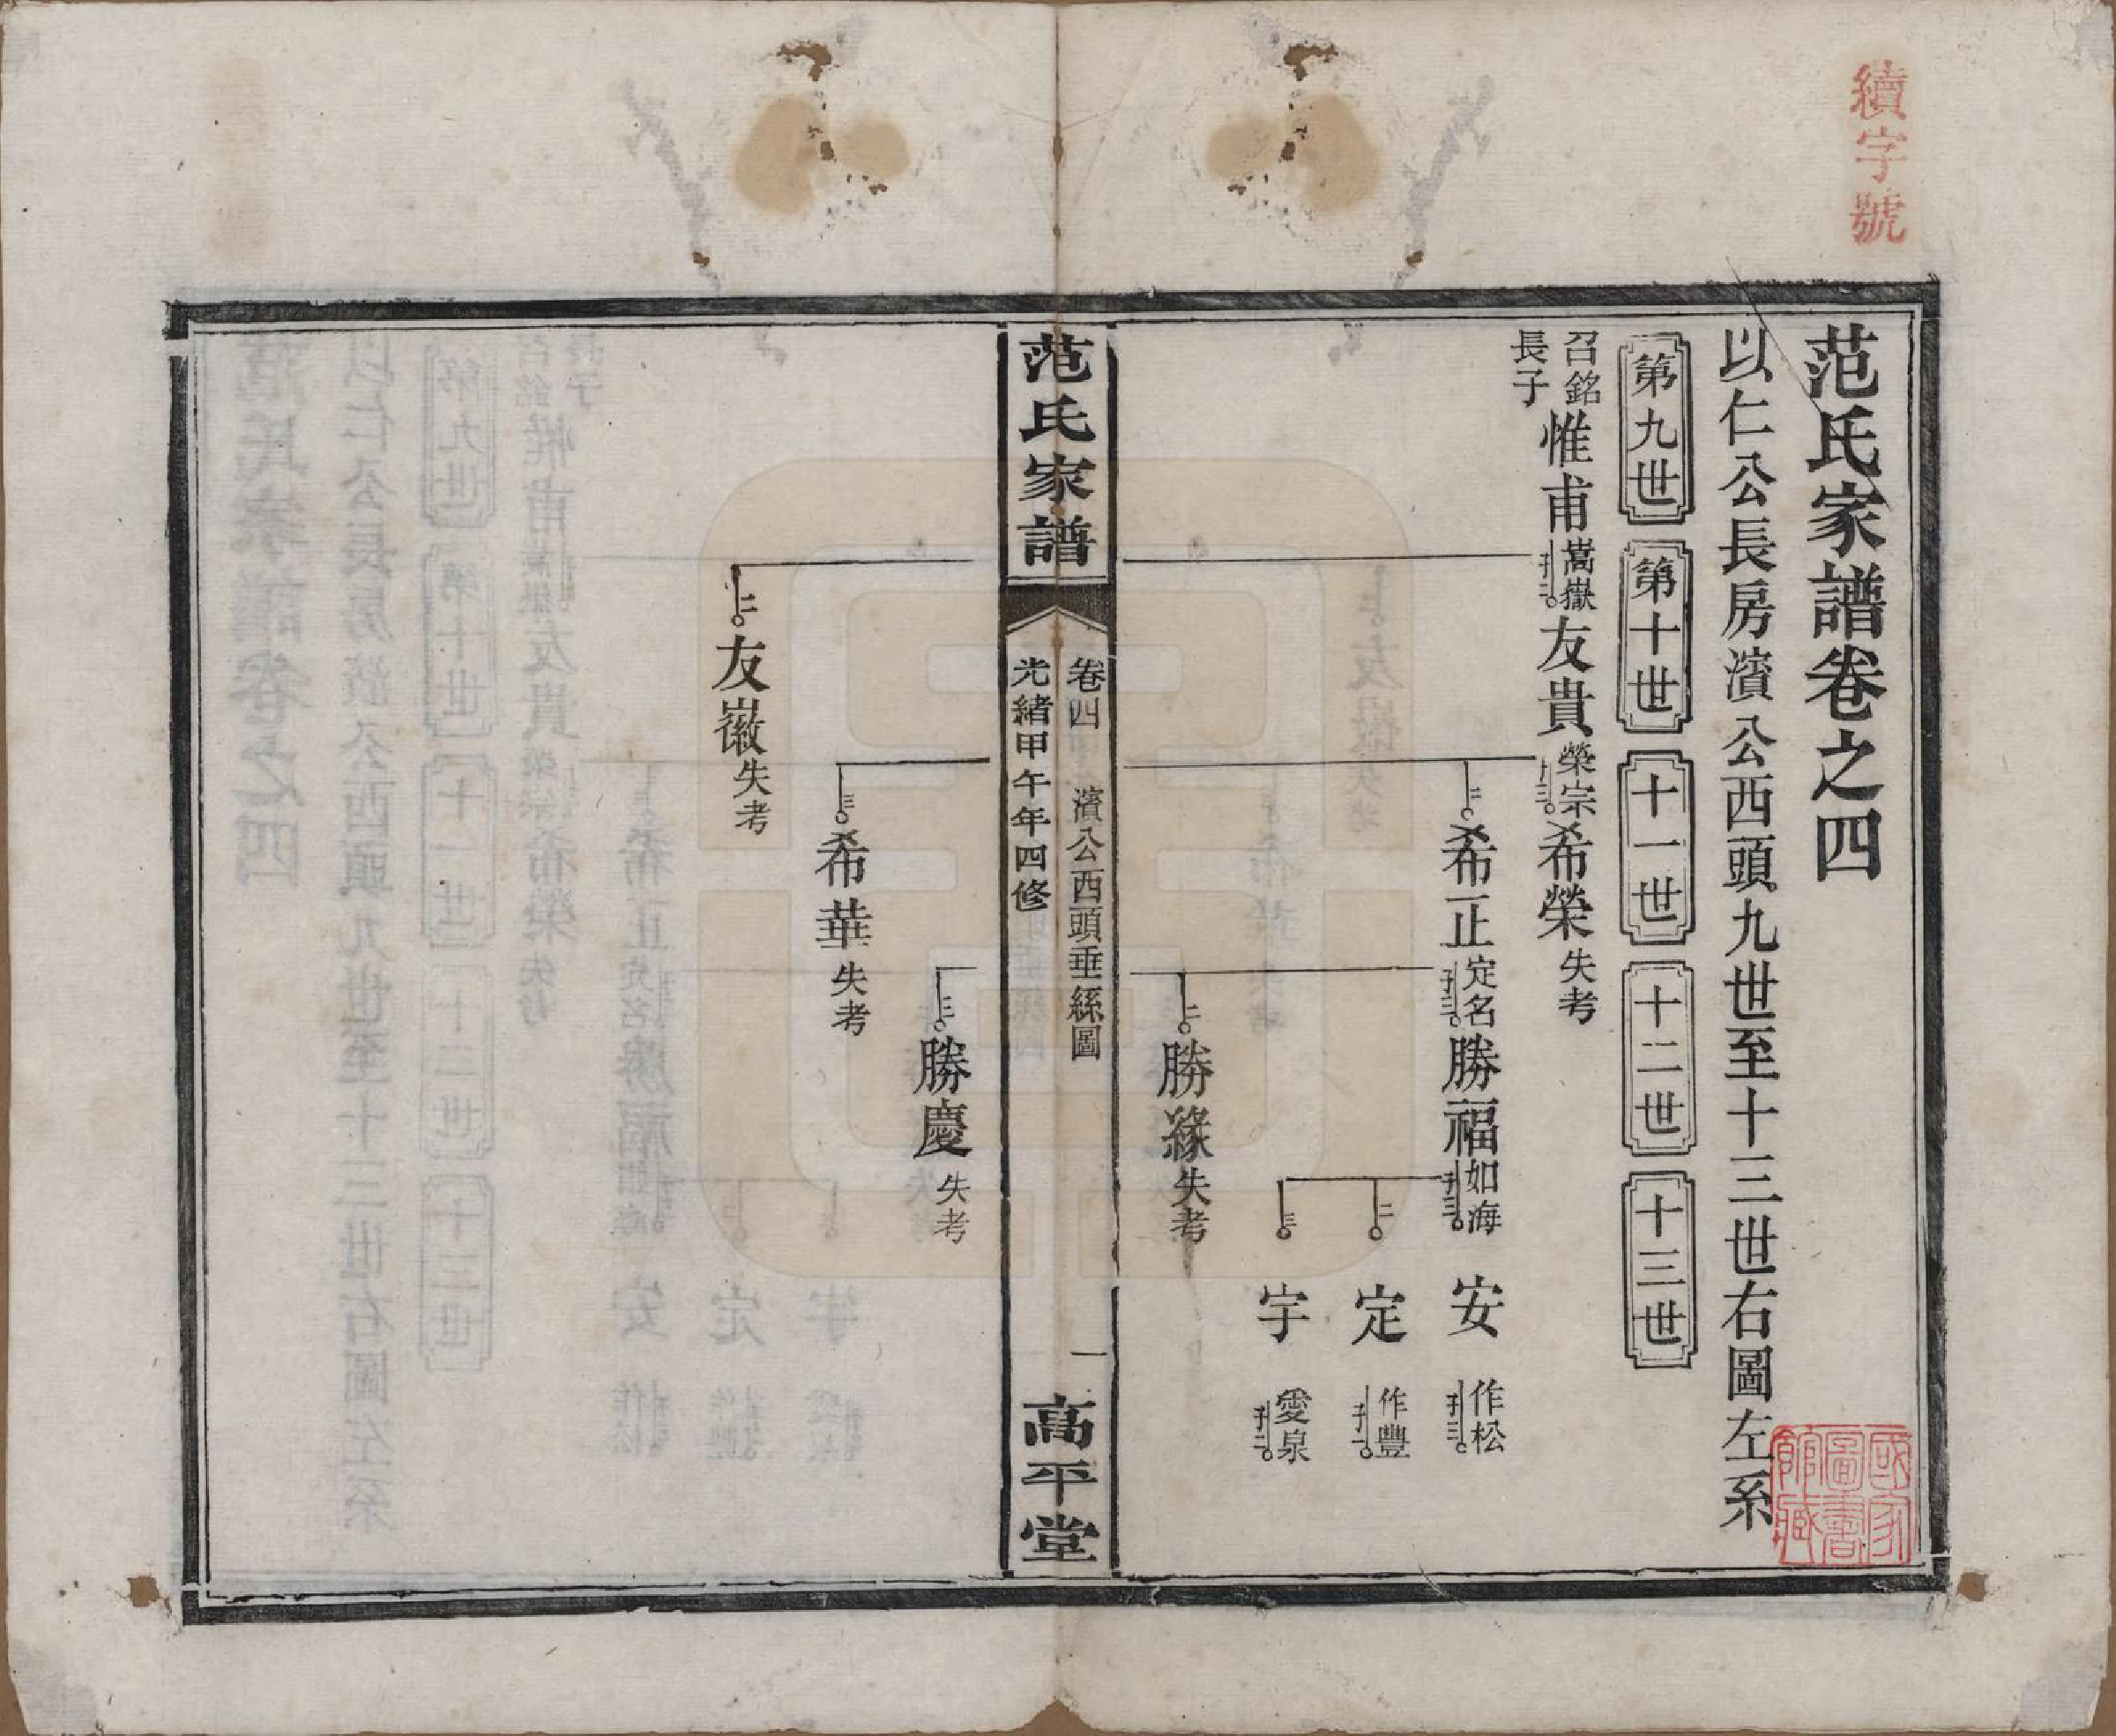 續字號
范氏家譜卷之四
以仁公長房濱公西頭九世至十三世右圖左系
第九世
第十世
十一世
十二世
十三世
召銘
長子
惟甫
嵩嶽
子二
友貴
榮宗
子三
希榮
失考
二
希正
定名
子三
勝福
如海
子三
安
作松
子三
二
定
作豐
子一
三
宇
愛泉
子二
二
勝緣
失考
范氏家譜
卷四
濱公西頭垂絲圖
一
光緒甲午年四修
高平堂
三
勝慶
失考
三
希華
失考
二
友徽
失考
國家
圖書
館藏